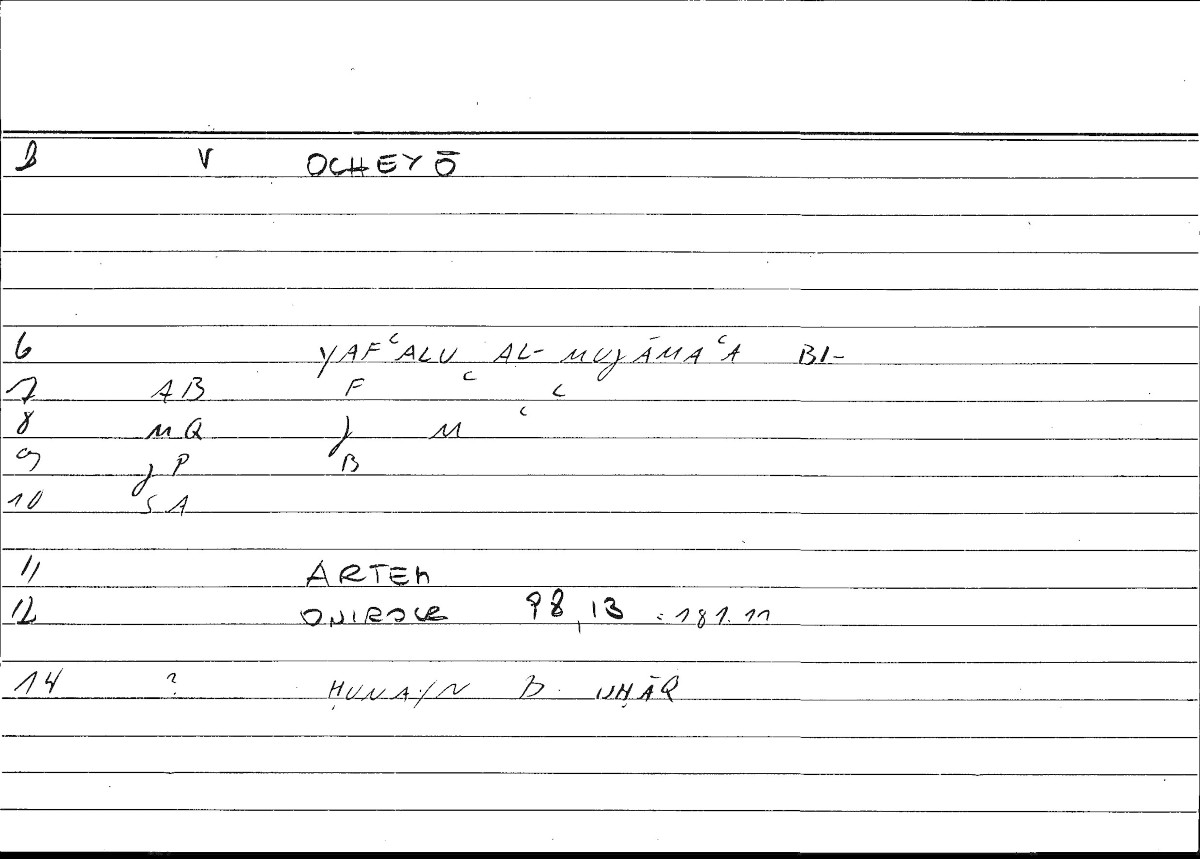 1 V OCHEYŌ
6 YAFʿALU AL-MUJĀMAʿA BI-
7 AB F ʿ ʿ
8 MQ J M ʿ
9 JP B
10 SA
11 ARTEM
12 ONIROCR 98,13 : 181.11
14 ? ḤUNAIN B. ISḤĀQ